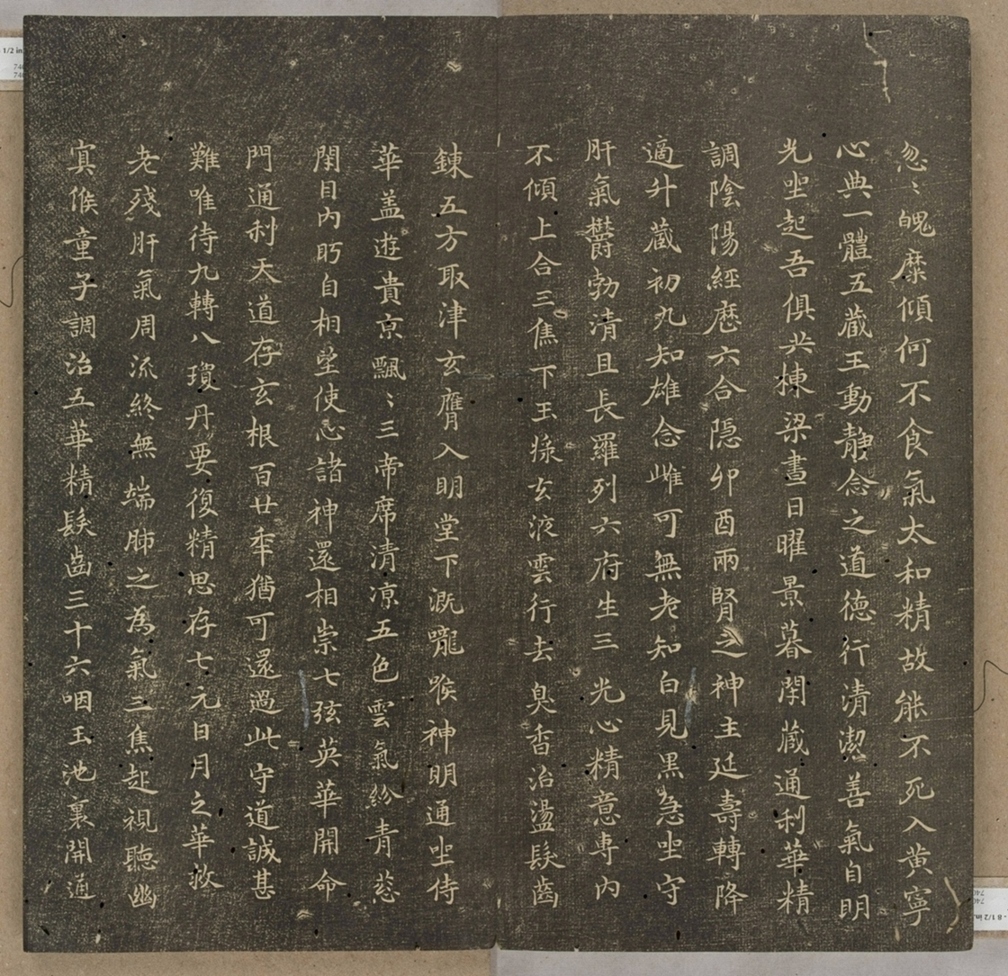 忽〻魄糜傾何不食氣太和精故能不死入黃寧
心典一體五藏王動靜念之道德行清潔善氣自明
光坐起吾俱共棟梁晝日曜景暮閉藏通利華精
調陰陽經歷六合隱卯酉兩腎之神主延壽轉降
適升藏初九知雄念雌可無老知白見黑急坐守
肝氣鬱勃清且長羅列六府生三光心精意專內
不傾上合三焦下玉漿玄液雲行去臭香治盪髮齒
鍊五方取津玄膺入明堂下溉嚨喉神明通坐侍
華蓋遊貴京飄〻三帝席清涼五色雲氣紛青蔥
閉目內眄自相望使心諸神還相崇七弦英華開命
門通利天道存玄根百廿年猶可還過此守道誠甚
難唯待九轉八瓊丹要復精思存七元日月之華救
老殘肝氣周流終無端肺之為氣三焦起視聽幽
冥候童子調治五華精髮齒三十六咽玉池裏開通
1/2 in